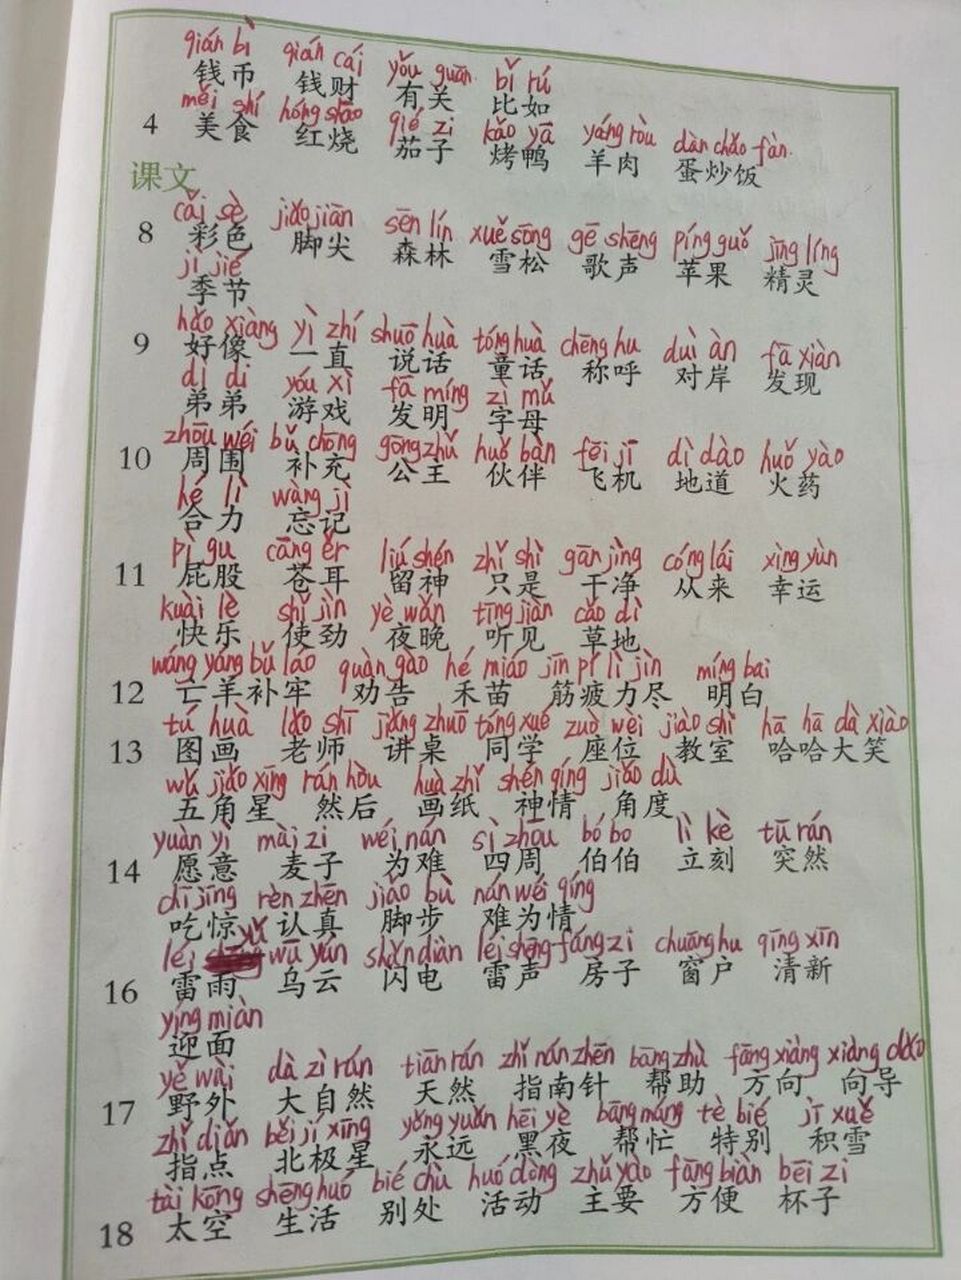 qián bì qián cái yǒu guān bǐ rú
钱币 钱财 有关 比如
měi shí hóng shāo qié zi kǎo yā yáng ròu dàn chǎo fàn
4 美食 红烧 茄子 烤鸭 羊肉 蛋炒饭
课文
cǎi sè jiǎo jiān sēn lín xuě sōng gē shēng píng guǒ jīng líng
8 彩色 脚尖 森林 雪松 歌声 苹果 精灵
jì jié
季节
hǎo xiàng yì zhí shuō huà tóng huà chēng hu duì àn fā xiàn
9 好像 一直 说话 童话 称呼 对岸 发现
dì di yóu xì fā míng zì mǔ
弟弟 游戏 发明 字母
zhōu wéi bǔ chōng gōng zhǔ huǒ bàn fēi jī dì dào huǒ yào
10 周围 补充 公主 伙伴 飞机 地道 火药
hé lì wàng jì
合力 忘记
pì gu cāng ěr liú shén zhǐ shì gān jìng cóng lái xìng yùn
11 屁股 苍耳 留神 只是 干净 从来 幸运
kuài lè shǐ jìn yè wǎn tīng jiàn cǎo dì
快乐 使劲 夜晚 听见 草地
wáng yáng bǔ láo quàn gào hé miáo jīn pí lì jìn míng bai
12 亡羊补牢 劝告 禾苗 筋疲力尽 明白
tú huà lǎo shī jiǎng zhuō tóng xué zuò wèi jiào shì hā hā dà xiào
13 图画 老师 讲桌 同学 座位 教室 哈哈大笑
wǔ jiǎo xīng rán hòu huà zhǐ shén qíng jiǎo dù
五角星 然后 画纸 神情 角度
yuàn yì mài zi wéi nán sì zhōu bó bo lì kè tū rán
14 愿意 麦子 为难 四周 伯伯 立刻 突然
chī jīng rèn zhēn jiǎo bù nán wéi qíng
吃惊 认真 脚步 难为情
léi yǔ wū yún shǎn diàn léi shēng fáng zi chuāng hu qīng xīn
16 雷雨 乌云 闪电 雷声 房子 窗户 清新
yíng miàn
迎面
yě wài dà zì rán tiān rán zhǐ nán zhēn bāng zhù fāng xiàng xiàng dǎo
17 野外 大自然 天然 指南针 帮助 方向 向导
zhǐ diǎn běi jí xīng yǒng yuǎn hēi yè bāng máng tè bié jī xuě
指点 北极星 永远 黑夜 帮忙 特别 积雪
tài kōng shēng huó bié chù huó dòng zhǔ yào fāng biàn bēi zi
18 太空 生活 别处 活动 主要 方便 杯子